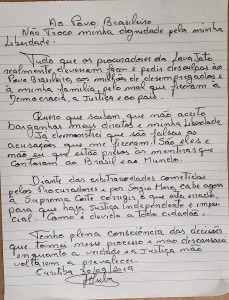 Ao Povo Brasileiro
Não Troco minha dignidade pela minha
Liberdade.
Tudo que os procuradores da Lava Jato
realmente deveriam fazer é pedir desculpas ao
Povo Brasileiro, aos milhões de desempregados e
à minha família, pelo mal que fizeram à
Democracia, à Justiça e ao país.
Quero que saibam que não aceito
barganhar meus direitos e minha Liberdade
Já demonstrei que são falsas as
acusações que me fizeram. São eles e
não eu que estão presos às mentiras que
contaram ao Brasil e ao Mundo.
Diante das arbitrariedades cometidas
pelos Procuradores e por Sergio Moro, cabe agora
à Suprema Corte corrigir o que está errado,
para que haja Justiça independente e impar-
cial. Como é devido a todo cidadão.
Tenho plena consciência das decisões
que tomei neste processo e não descansarei
enquanto a verdade e a Justiça não
voltarem a prevalecer.
Curitiba 30/09/2019
Lula